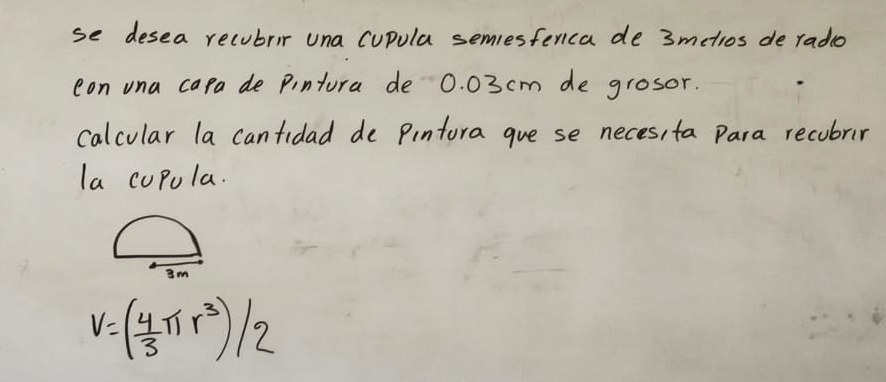 se desea recubrir una cupula semiesferica de 3metros de radio
con una capa de pintura de 0.03cm de grosor.
calcular la cantidad de pintura que se necesita para recubrir
la cupula.
3m
V=(4/3 π r³)/2